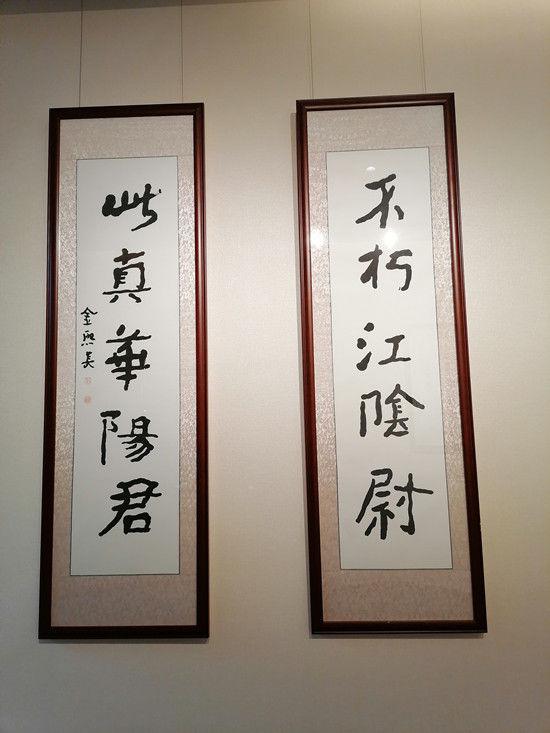 不朽江陰尉
此真華陽君
金熙長